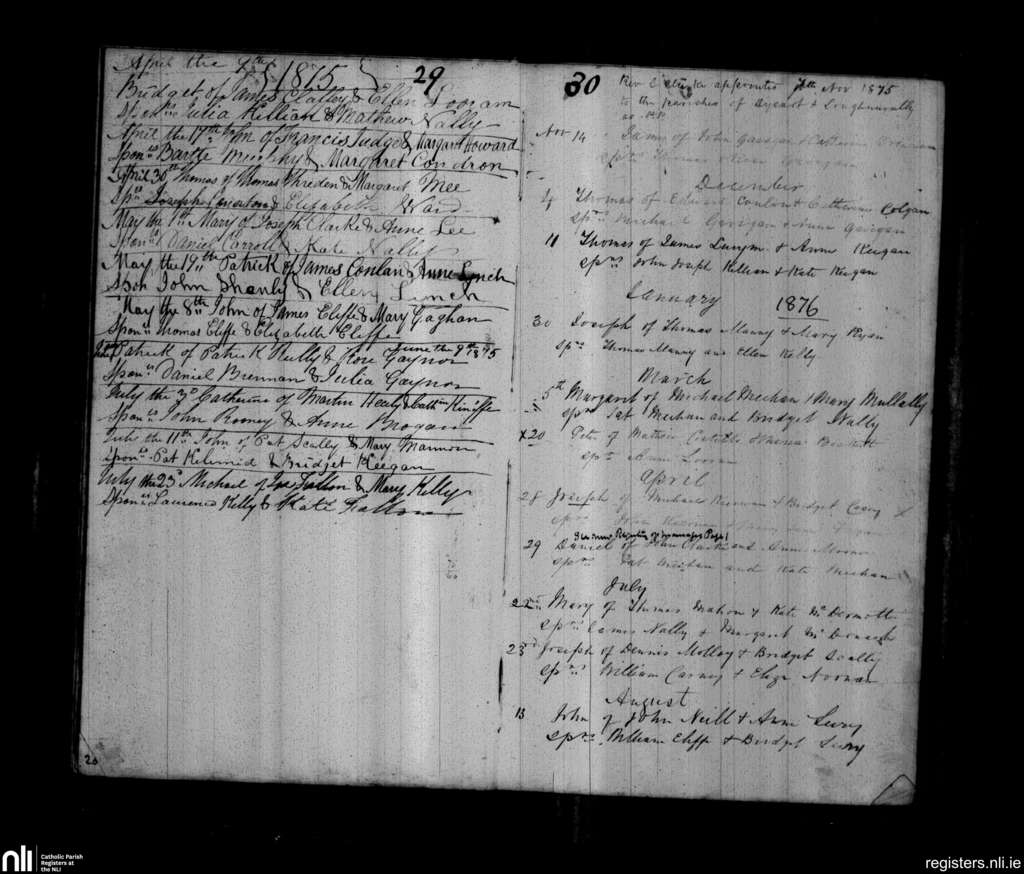 April the 7th 1875 29
Bridget of James Clatley & Ellen
Spon Julia Killian & Mathew Nally
April the 17th of Francis Judge & Margaret Howard
Spon Bartle Murphy & Margaret Condron
April 30th Thomas of Thomas Threden & Margaret Mee
Sp Joseph & Elizabeth Ward
May the Mary of Joseph Clarke & Anne Lee
Spon Daniel Carroll & Kate Nally
May the 19th Patrick of James Conlan & Anne Lynch
Spon John Shanly & Ellen Lynch
May the 8th John of James Eliffe & Mary Gaghan
Spon Thomas Eliffe & Elizabeth Eliffe
June the 9th 1875
Patrick of Patrick Reilly & Rose Gaynor
Spon Daniel Brennan & Julia Gaynor
July the 3d Catherine of Martin Healy & Cath Kiniffe
Spon John Rooney & Anne Brogan
July the 11th John of Pat Scally & Mary Mannion
Spon Pat & Bridget Keegan
July the 23d Michael of Jas Fallon & Mary Kelly
Spon Laurence Kelly & Kate Fallon
20
30
Rev appointed 7th Nov 1875
to the parishes of Dysart &
as P.P.
Nov 14 James of John &
spr Thomas
December
4 Thomas of Edward Conlon & Catherine Colgan
spr Michael Garigan & Anne Garigan
11 Thomas of James & Anne Keegan
sprs John Joseph Killian & Kate Keegan
January 1876
30 Joseph of Thomas Manny & Mary Ryan
sprs Thomas Manny and Ellen Kelly
March
5th Margaret of Michael Meehan & Mary Mullally
sprs Pat Meehan and Bridget Nally
x20 Peter of
spr Anne
April
28 Joseph of Michael & Bridget Casey
spr John
29 Daniel of John Clarke and Anne
sprs Pat Meehan and Kate Meehan
July
22nd Mary of Thomas Mahon & Kate McDermott
sprs James Nally & Margaret McDermott
23rd Joseph of Dennis Molloy & Bridget Scally
sprs William Carney & Eliza Noonan
August
13 John of John Neill & Anne Seery
sprs William Eliffe & Bridget Seery
nli
Catholic Parish
Registers at
the NLI
registers.nli.ie